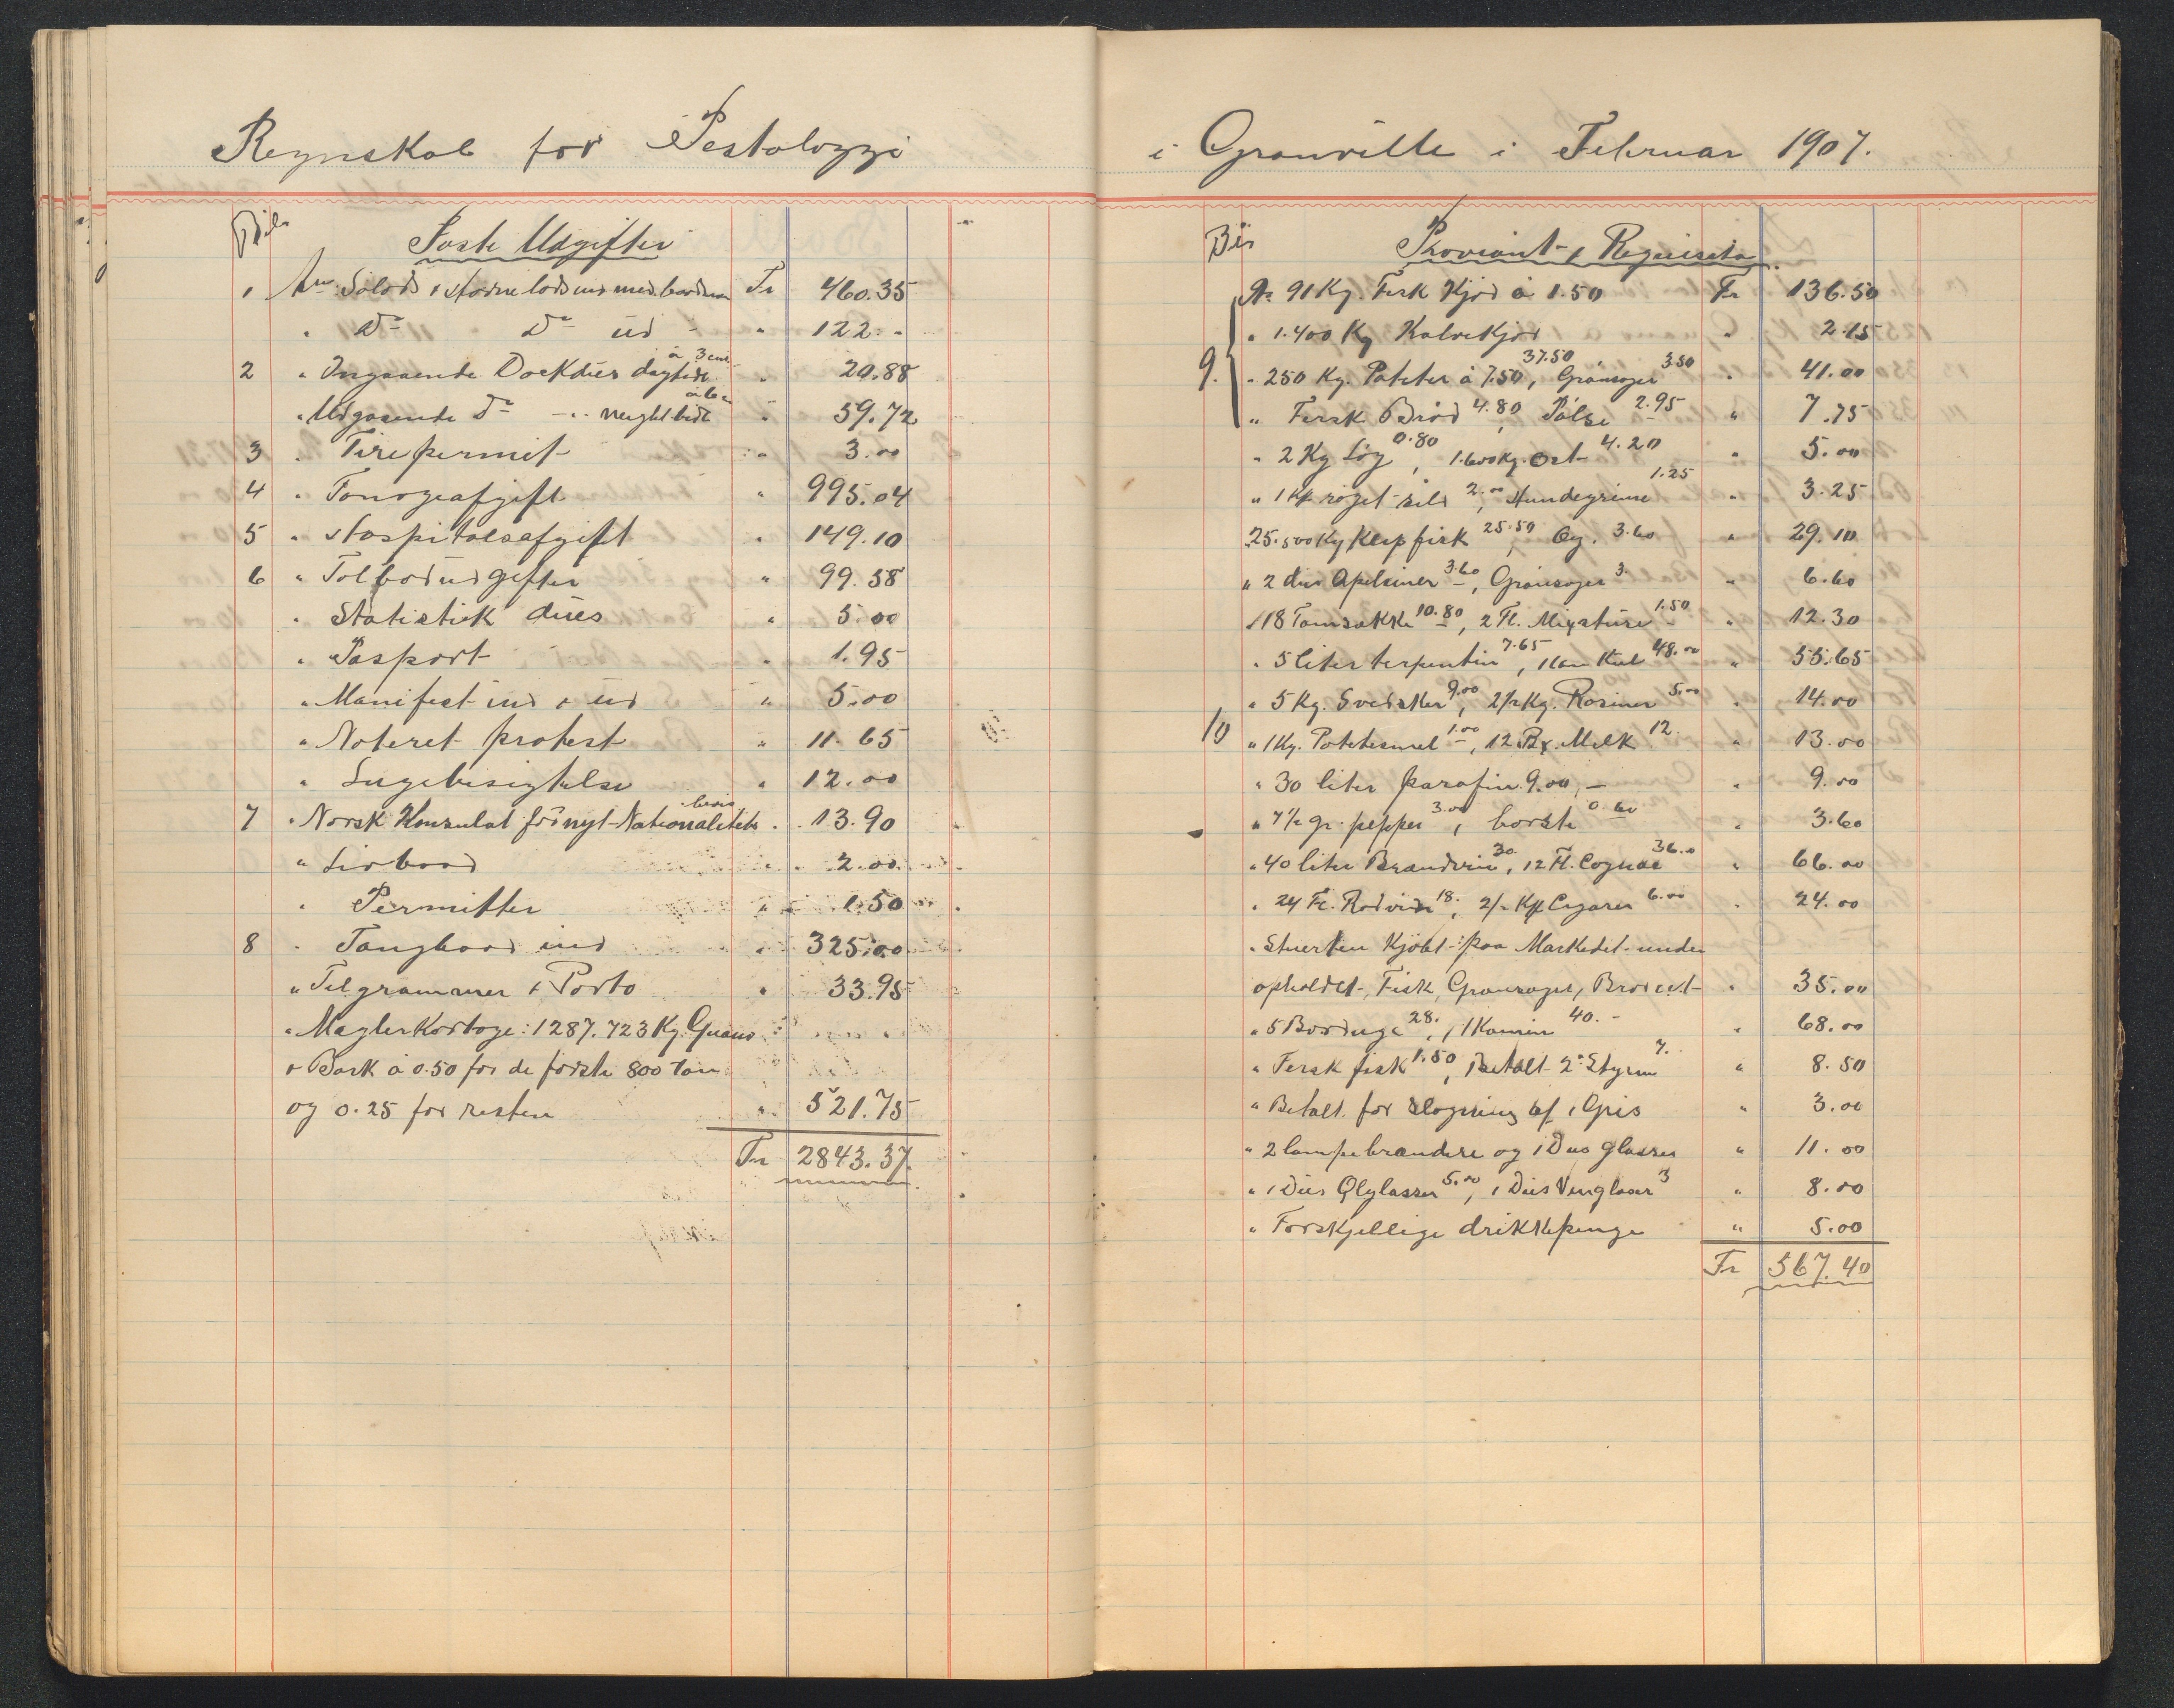 Regnskab for Pestalozzi
i Granville i Februar 1907.
Bil.
Faste Udgifter
1 An Sölods & Havne lods ind med baadene Fr 460.35
" Do Do ud " 122.-
2 " Indgaaende Dockdues dagtide à 3 cent " 20.88
" Udgaaende Do -"- neightide à 6 c " 59.72
3 " Firepermit " 3.00
4 " Tonnageafgift " 995.04
5 " Hospitalsafgift " 149.10
6 " Tolbodudgifter " 99.58
" Statistik dues " 5.00
" Pasport " 1.95
" Manifest ind & ud " 5.00
" Noteret protest " 11.65
" Lugebesigtelse " 12.00
7 " Norsk Konsulat för nyt Nationalitets-bevis " 13.90
" 2.00
" Permitter " 1.50
8 " Taugbaad ind " 325.00
" Telgrammer & Porto " 33.95
" Maglerkortage: 1287.723 Kg. Guano
& Bark à 0.50 for de förste 800 Ton
og 0.25 for resten " 521.75
Fr 2843.37.
Bil
Proviant & Requisita
An 91 Kg. Fersk Kjöd à 1.50 Fr 136.50
" 1.400 Kg Kalvekjöd " 2.15
9. " 250 Kg. Poteter à 7.50 37.50, Grönsager 3.50 " 41.00
" Fersk Bröd 4.80, Pölse 2.95 " 7.75
" 2 Kg Lög 0.80, 1.600 Kg. Ost 4.20 " 5.00
" 1 Kg röget sild 2.00, Hundegrime 1.25 " 3.25
25.500 Kg Klepfisk 25.50, Eg. 3.60 " 29.10
" 2 dus Apelsiner 3.60, Grönsager 3. " 6.60
" 18 Tomsække 10.80, 2 Fl. Mixture 1.50 " 12.30
" 5 liter terpentin 7.65, 1 ton Kul 48.00 " 55.65
" 5 Kg. Svedsker 9.00, 2 1/2 Kg. Rosiner 5.00 " 14.00
10 " 1 Kg. Potetesmel 1.00, 12 Bx. Melk 12. " 13.00
" 30 liter parafin 9.00, - " 9.00
" 7 1/2 gr. pepper 3.00, borste 0.60 " 3.60
" 40 liter Brændvin 30., 12 Fl. Cognac 36.00 " 66.00
" 24 Fl. Rödvin 18., 2/2 Ks Cigarer 6.00 " 24.00
" Stuerten Kjöbt paa Markedet under
opholdet, Fisk, Grönsager, Bröd ect " 35.00
" 5 Borduge 28., 1 Kamin 40.- " 68.00
" Fersk fisk 1.50, Betalt 2n Styrm 7. " 8.50
" Betalt for slagning af 1 Gris " 3.00
" 2 lampebrændere og 1 Dus glasser " 11.00
" 1 Dus Ölglasser 5.00, 1 Dus Vinglaser 3 " 8.00
" Forskjellige drikkepenge " 5.00
Fr 567.40